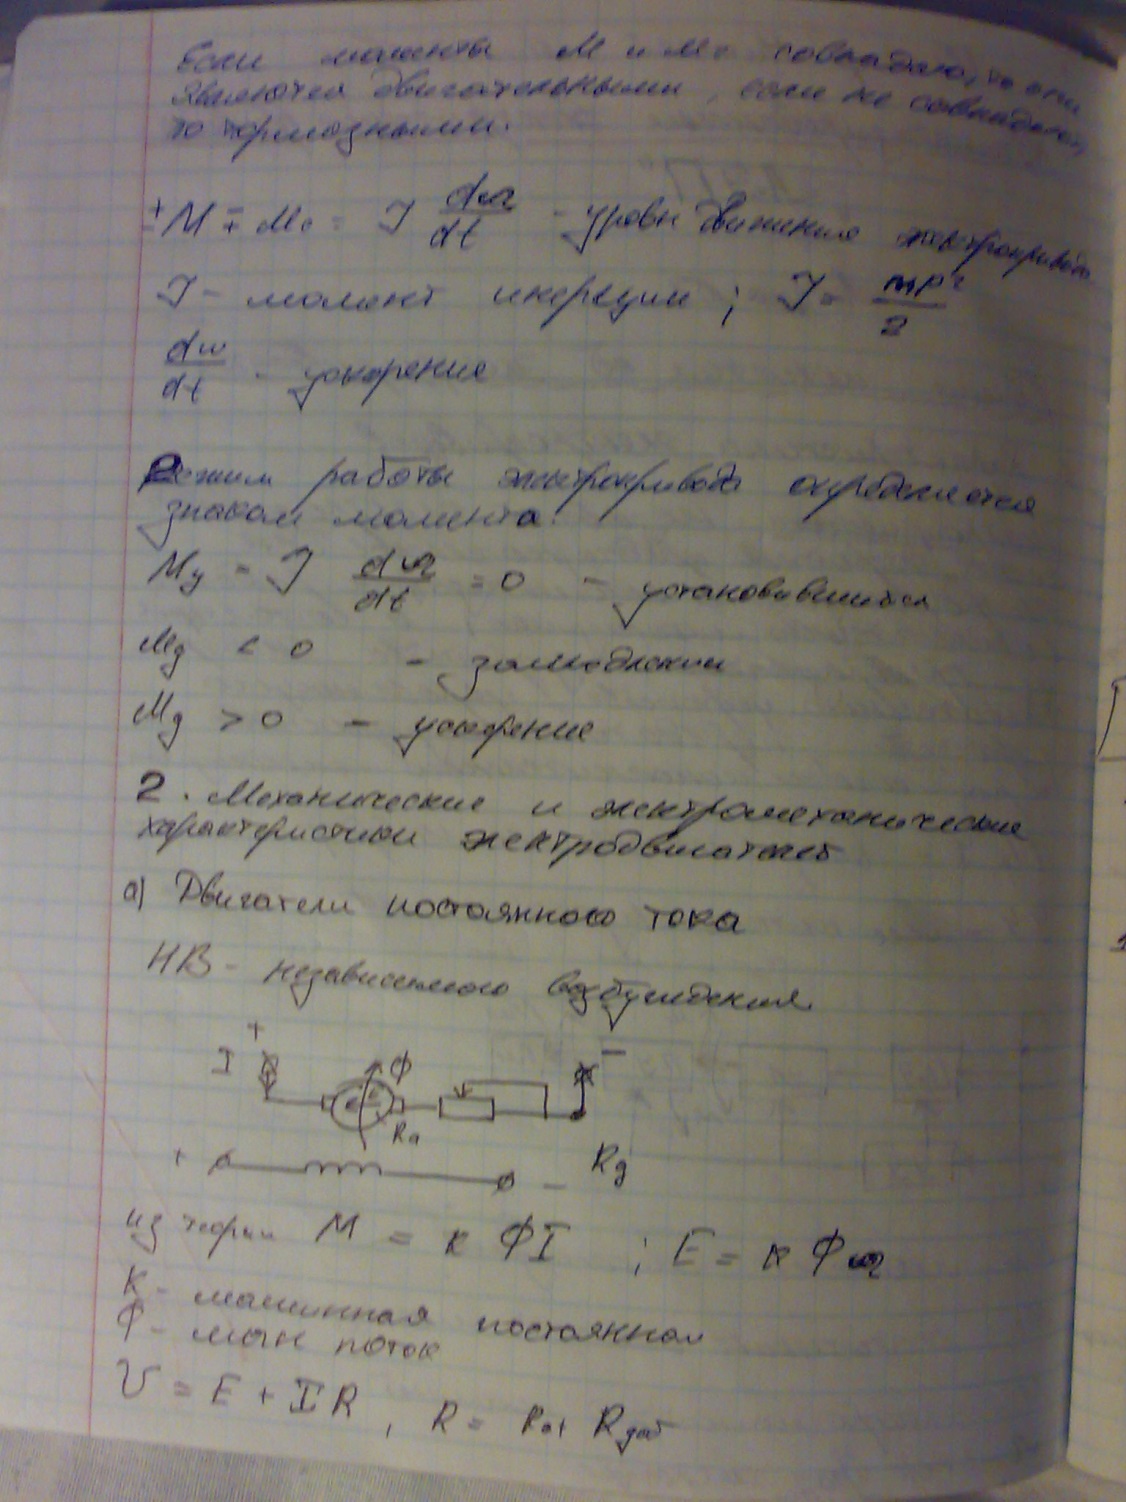 Если моменты M и Mc совпадают, то они
являются двигательными, если не совпадают
то тормозными.
± M ∓ Mc = J dω/dt - уравн движения электропривода
J - момент инерции ; J = mρ²/2
dω/dt - ускорение
Режим работы электропривода определяется
знаком момента:
My = J dω/dt = 0 - установившийся
Mg < 0 - замедлении
Mg > 0 - ускорение
2. Механические и электромеханические
характеристики электродвигателей
а) Двигатели постоянного тока
НВ - независимого возбуждения
+ Ф -
I E
Ra
+ - Rg
из теории M = к Ф I ; E = к Ф ω
К - машинная постоянная
Ф - магн поток
U = E + I R , R = Ra+ Rдоб